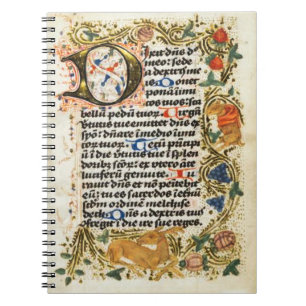 Dixit dñs d
meo: sede
a dextris me
is Donec
ponā inimi
cos tuos: sca
bellū pedū tuoꝝ. Virgā
v̄tutis tue emittet dñs ex
syō: dñare ī medio inimi
coꝝ tuoꝝ. Tecū prīci
piū ī die v̄tutis tue ī splen
doribꝫ scōꝝ: ex vtero āte
luciferū genui te.
Iurauit dñs et nō penitebit
eū: tu es sacerdos ī eternū
scdm ordinē melchise
dech. Dñs a dextris tuis
cōfregit ī die ire sue reges.